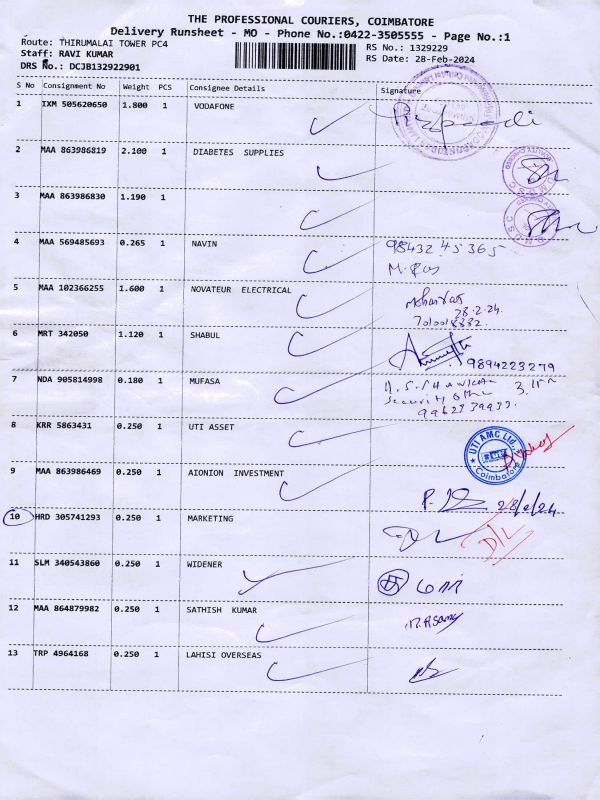 THE PROFESSIONAL COURIERS, COIMBATORE
Delivery Runsheet - MO - Phone No.:0422-3505555 - Page No.:1
Route: THIRUMALAI TOWER PC4
RS No.: 1329229
Staff: RAVI KUMAR
RS Date: 28-Feb-2024
DRS No.: DCJB132922901
S No Consignment No Weight PCS Consignee Details Signature
1 IXM 505620650 1.800 1 VODAFONE
2 MAA 863986819 2.100 1 DIABETES SUPPLIES
3 MAA 863986830 1.190 1
4 MAA 569485693 0.265 1 NAVIN 98432 45365
5 MAA 102366255 1.600 1 NOVATEUR ELECTRICAL
28.2.24
6 MRT 342050 1.120 1 SHABUL 9894223279
7 NDA 905814998 0.180 1 MUFASA
Security
8 KRR 5863431 0.250 1 UTI ASSET UTI AMC Ltd., Coimbatore
9 MAA 863986469 0.250 1 AIONION INVESTMENT
28/2/24
10 HRD 305741293 0.250 1 MARKETING D/L
11 SLM 340543860 0.250 1 WIDENER
12 MAA 864879982 0.250 1 SATHISH KUMAR
13 TRP 4964168 0.250 1 LAHISI OVERSEAS